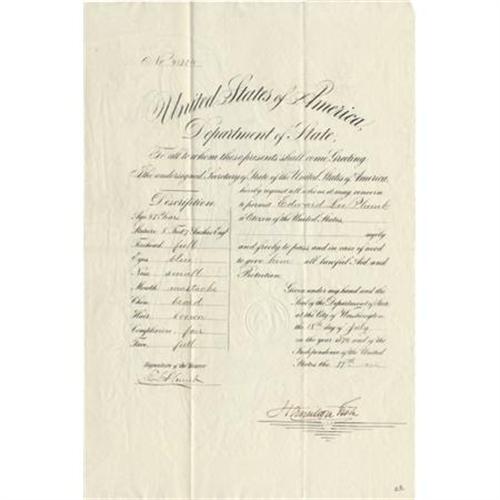 No
United States of America,
Department of State,
To all to whom these presents shall come Greeting
I the undersigned, Secretary of State of the United States of America,
hereby request all whom it may concern
to permit Edward Lee Plumb
a Citizen of the United States,
safely
and freely to pass and in case of need
to give him all lawful Aid and
Protection.
Description
Age Years
Stature 5 Feet 7 Inches Eng.
Forehead full
Eyes blue
Nose small
Mouth mustache
Chin beard
Hair brown
Complexion fair
Face full
Signature of the Bearer
E L Plumb
Given under my hand and the
Seal of the Department of State
at the City of Washington
the 18th day of July
in the year 1874 and of the
Independence of the United
States the
Hamilton Fish